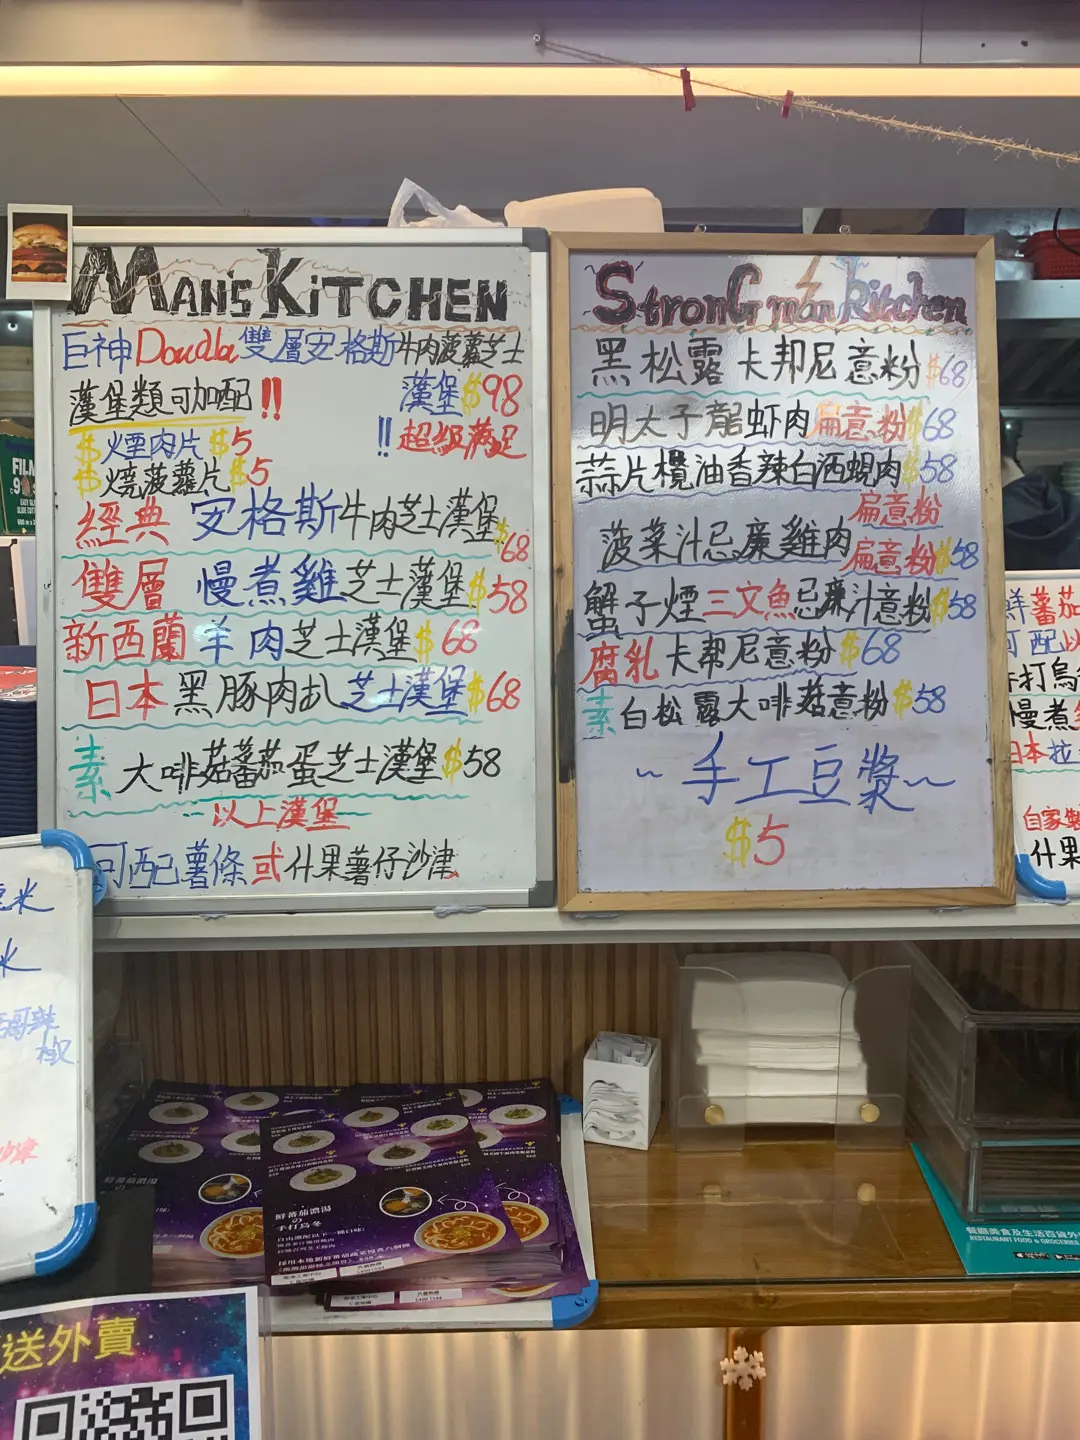 MAN'S KiTCHEN
巨神Doudla雙層安格斯牛肉菠蘿芝士
漢堡類可加配!!
漢堡$98
$煙肉片$5
!!超級滿足
$燒菠蘿片$5
經典 安格斯牛肉芝士漢堡$68
雙層 慢煮雞芝士漢堡$58
新西蘭羊肉芝士漢堡$68
日本黑豚肉扒芝士漢堡$68
素 大啡菇蕃茄蛋芝士漢堡$58
以上漢堡
可配薯條或什果薯仔沙津
StronG man kitchen
黑松露卡邦尼意粉$68
明太子龍蝦肉扁意粉$68
蒜片欖油香辣白酒蜆肉$58
扁意粉
菠菜汁忌廉雞肉扁意粉$58
蟹子煙三文魚忌廉汁意粉$58
腐乳卡幫尼意粉$68
素白松露大啡菇意粉$58
~手工豆漿~
$5
鮮蕃茄
可配以
手打烏
慢煮
日本拉
自家製
什果
米
米
椒
FILM
鮮蕃茄濃湯
の
手打烏冬
餐廳美食及生活百貨外
RESTAURANT FOOD & GROCERIES
送外賣